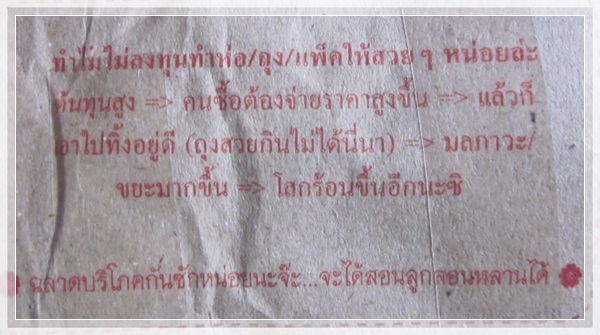 ทำไมไม่ลงทุนทำห่อ/ถุง/แพ็คให้สวย ๆ หน่อยล่ะ
ต้นทุนสูง => คนซื้อต้องจ่ายราคาสูงขึ้น => แล้วก็
เอาไปทิ้งอยู่ดี (ถุงสวยกินไม่ได้นี่นา) => มลภาวะ/
ขยะมากขึ้น => โลกร้อนขึ้นอีกนะซิ
ฉลาดบริโภคกันซักหน่อยนะจ๊ะ...จะได้สอนลูกสอนหลานได้